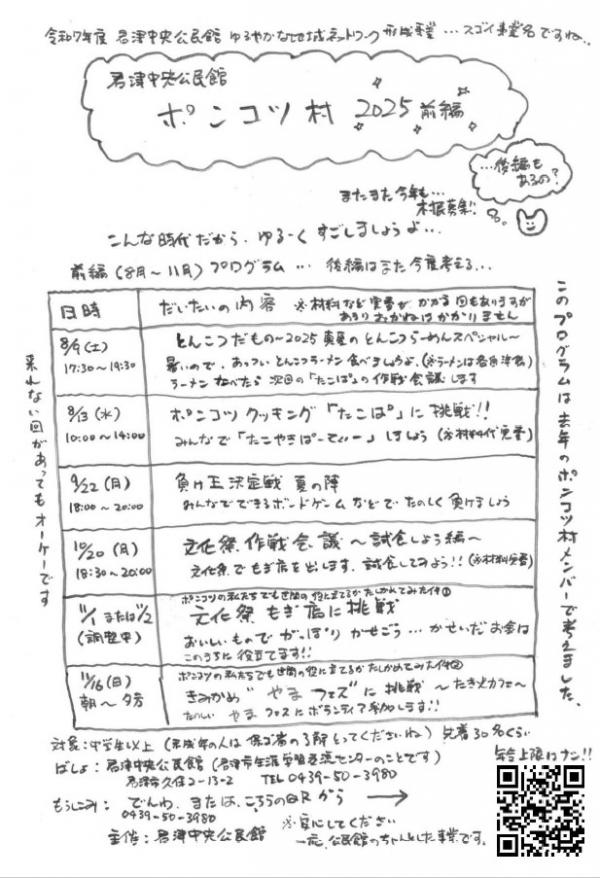 令和7年度 君津中央公民館 ゆるやかな地域ネットワーク形成事業…スゴイ事業名ですね..
君津中央公民館
ポンコツ村 2025 前編
…後編も
あるの?
またまた今年も…
村民募集!
こんな時代だから、ゆるーくすごしましょうよ…
前編(8月〜11月)プログラム … 後編はまた今度考える…
日時
だいたいの内容 ※材料など実費がかかる回もありますが
あまりおかねはかかりません
8/9(土)
17:30〜19:30
とんこつだもの〜2025真夏のとんこつらーめんスペシャル〜
暑いので、あっついとんこつラーメン食べましょうよ、(※ラーメンは各自実費)
ラーメンたべたら次回の「たこぱ」の作戦会議します
8/13(水)
10:00〜14:00
ポンコツクッキング「たこぱ」に挑戦!!
みんなで「たこやきぱーてぃー」しましょう(※材料代実費)
9/22(月)
18:00〜20:00
負け王決定戦 夏の陣
みんなでできるボードゲームなどでたのしく負けましょう
10/20(月)
18:30〜20:00
文化祭作戦会議〜試食しよう編〜
文化祭でもぎ店を出します、試食してみよう!!(※材料実費)
11/1または11/2
(調整中)
ポンコツの私たちでも世間の役に立てるかたしかめてみた件①
文化祭もぎ店に挑戦
おいしいものでがっぽりかせごう…かせいだお金は
このうちに役立てます!!
11/16(日)
朝〜夕方
ポンコツの私たちでも世間の役に立てるかたしかめてみた件②
きみかめ"やまフェス"に挑戦〜たき火カフェ〜
たのしいやまフェスにボランティア参加します!!
来れない回があってもオーケーです
このプログラムは去年のポンコツ村メンバーで考えました、
対象:中学生以上(未成年の人は保護者の了解とってくださいね)先着30名くらい
年令上限はナシ!!
ばしょ:君津中央公民館(君津市生涯学習交流センターのことです)
君津市久保2-13-2 TEL 0439-50-3980
もうしこみ:でんわ、または、こちらのQRから
0439-50-3980
※安心してください
主催:君津中央公民館
一応、公民館のちゃんとした事業です。